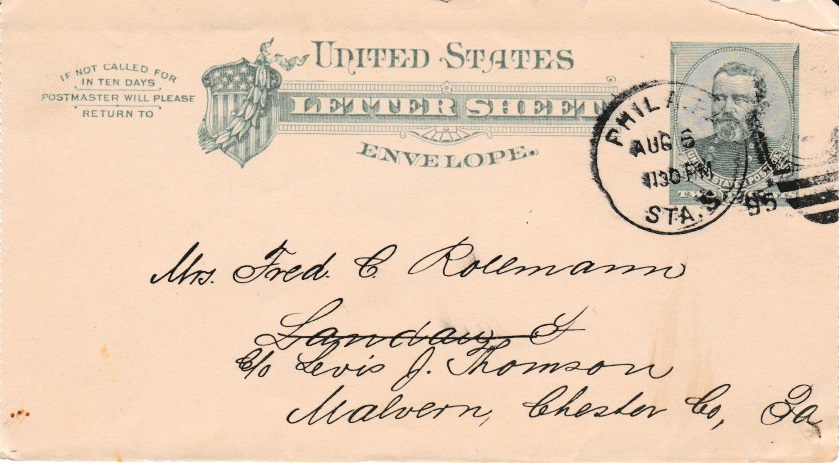 IF NOT CALLED FOR
IN TEN DAYS
POSTMASTER WILL PLEASE
RETURN TO
UNITED STATES
LETTER SHEET
ENVELOPE.
PHILA.
AUG 5
1130 PM
STA. S
95
Mrs. Fred. C. Rollmann
c/o Levis J. Thomson
Malvern, Chester Co, Pa